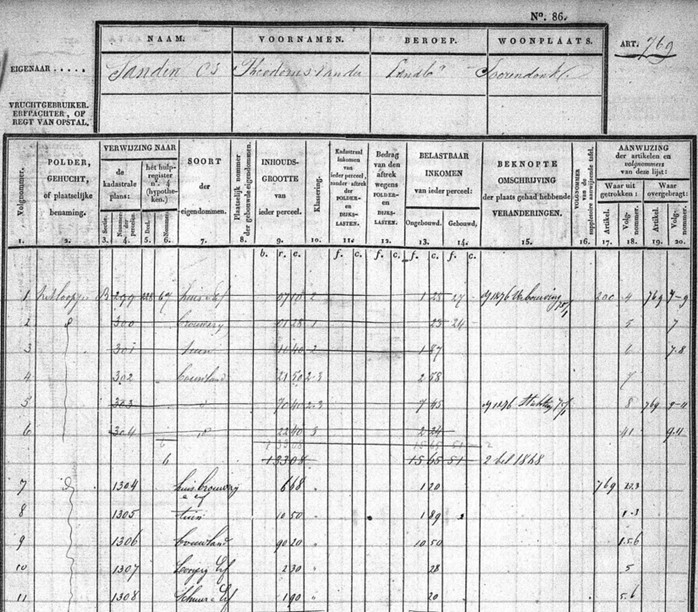 No. 86.
NAAM. VOORNAMEN. BEROEP. WOONPLAATS. ART. 769
EIGENAAR ..... Sanden Theodorus van der Soerendonk
VRUCHTGEBRUIKER.
ERFPACHTER, OF
REGT VAN OPSTAL.
Volgnummer. POLDER, GEHUCHT, of plaatselijke benaming. VERWIJZING NAAR de kadastrale plans: het hulpregister n°. 4 (hypotheken.) SOORT der eigendommen. Plaatselijk nommer der gebouwde eigendommen. INHOUDSGROOTTE van ieder perceel. Klassering. Kadastraal inkomen van ieder perceel, zonder aftrek der POLDER- EN DIJKSLASTEN. Bedrag van den aftrek wegens POLDER- EN DIJKSLASTEN. BELASTBAAR INKOMEN van ieder perceel: BEKNOPTE OMSCHRIJVING der plaats gehad hebbende VERANDERINGEN. VOLGNOMMER van de suppletoire aanwijzende tafel. AANWIJZING der artikelen en volgnommers van deze lijst:
Sectie. Deel. Nommer. Ongebouwd. Gebouwd, Waar uit getrokken: Waar overgebragt:
Artikel. Volgnommer. Artikel. Volgnommer.
1. 2. 3. 4. 5. 6. 7. 8. 9. 10. 11. 12. 13. 14. 15. 16. 17. 18. 19. 20.
b. r. e. f. c. f. c. f. c. f. c.
1 B 299 67 huis & erf 07 10 2 1 25 27 1876 Verbouwing 200 4 769
2 300 brouwery 01 28 1 23 24 5 7
3 301 tuin 11 40 2 1 87 6 7.8
4 302 bouwland 21 50 2-3 2 58 7
5 303 " 70 40 2.3 7 45 1876 8 769
6 304 " 22 40 3 2 24 9.11
6 13308 15 65 51 2 bel 1868
7 1304 huis brouwery & erf 6 68 " 1 20 769
8 1305 tuin 10 50 " 1 89
9 1306 bouwland 90 20 " 10 50
10 1307 2 30 " 28 5
11 1308 Schuur & Erf 1 90 " 20 5.6